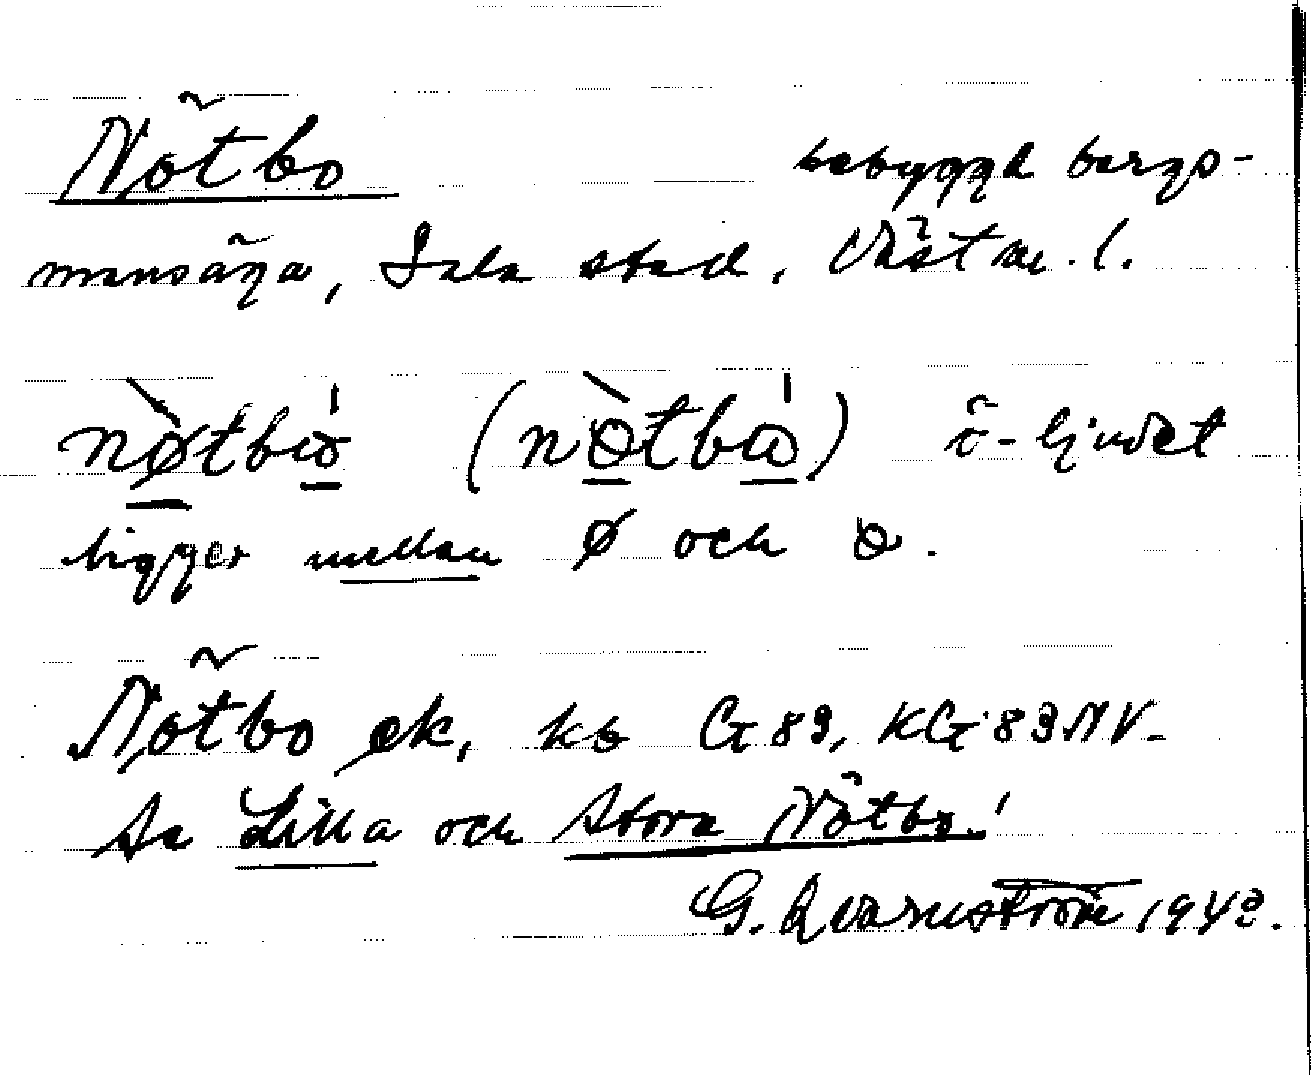 Nötbo bebyggd bergs-
mansäga, Sala stad, Västm. l.
nø̀tbω̍ (nɵ̀tbω̍) ö-ljudet
ligger mellan ø och ɵ.
Nötbo ek, kb G 83, KG 83 NV-
Se Lilla och Stora Nötbo!
G. Qvarnström 1943.